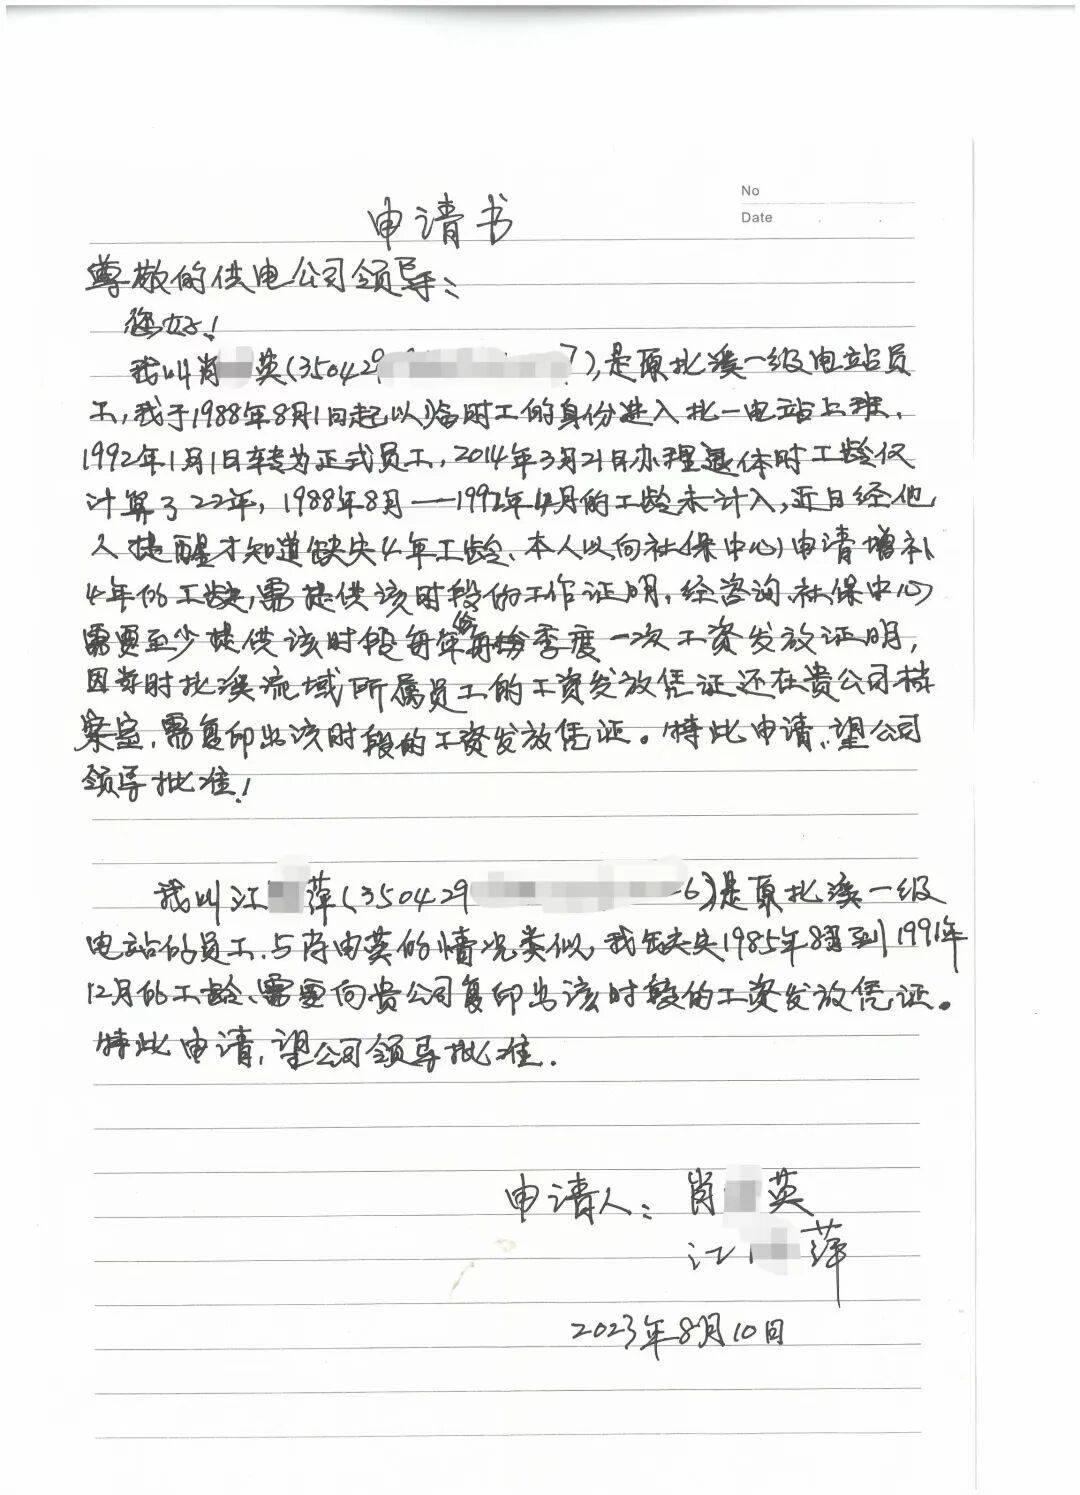 No
Date
申请书
尊敬的供电公司领导：
您好！
我叫肖 英(350429 7),是原北溪一级电站员
工,我于1988年8月1日起以临时工的身份进入北一电站上班,
1992年1月1日转为正式员工,2014年3月21日办理退休时工龄仅
计算了22年,1988年8月——1991年12月的工龄未计入,近日经他
人提醒才知道缺失4年工龄、本人以向社保中心申请增补
4年的工龄,需提供该时段的工作证明,经咨询社保中心
需要至少提供该时段每年每份季度一次工资发放证明,
因当时北溪流域所属员工的工资发放凭证还在贵公司档
案室,需复印出该时段的工资发放凭证。特此申请、望公司
领导批准！
我叫江 萍(350429 6)是原北溪一级
电站的员工、与肖由英的情况类似,我缺失1985年8月到1991年
12月的工龄、需要向贵公司复印出该时段的工资发放凭证。
特此申请,望公司领导批准.
申请人：肖 英
江 萍
2023年8月10日